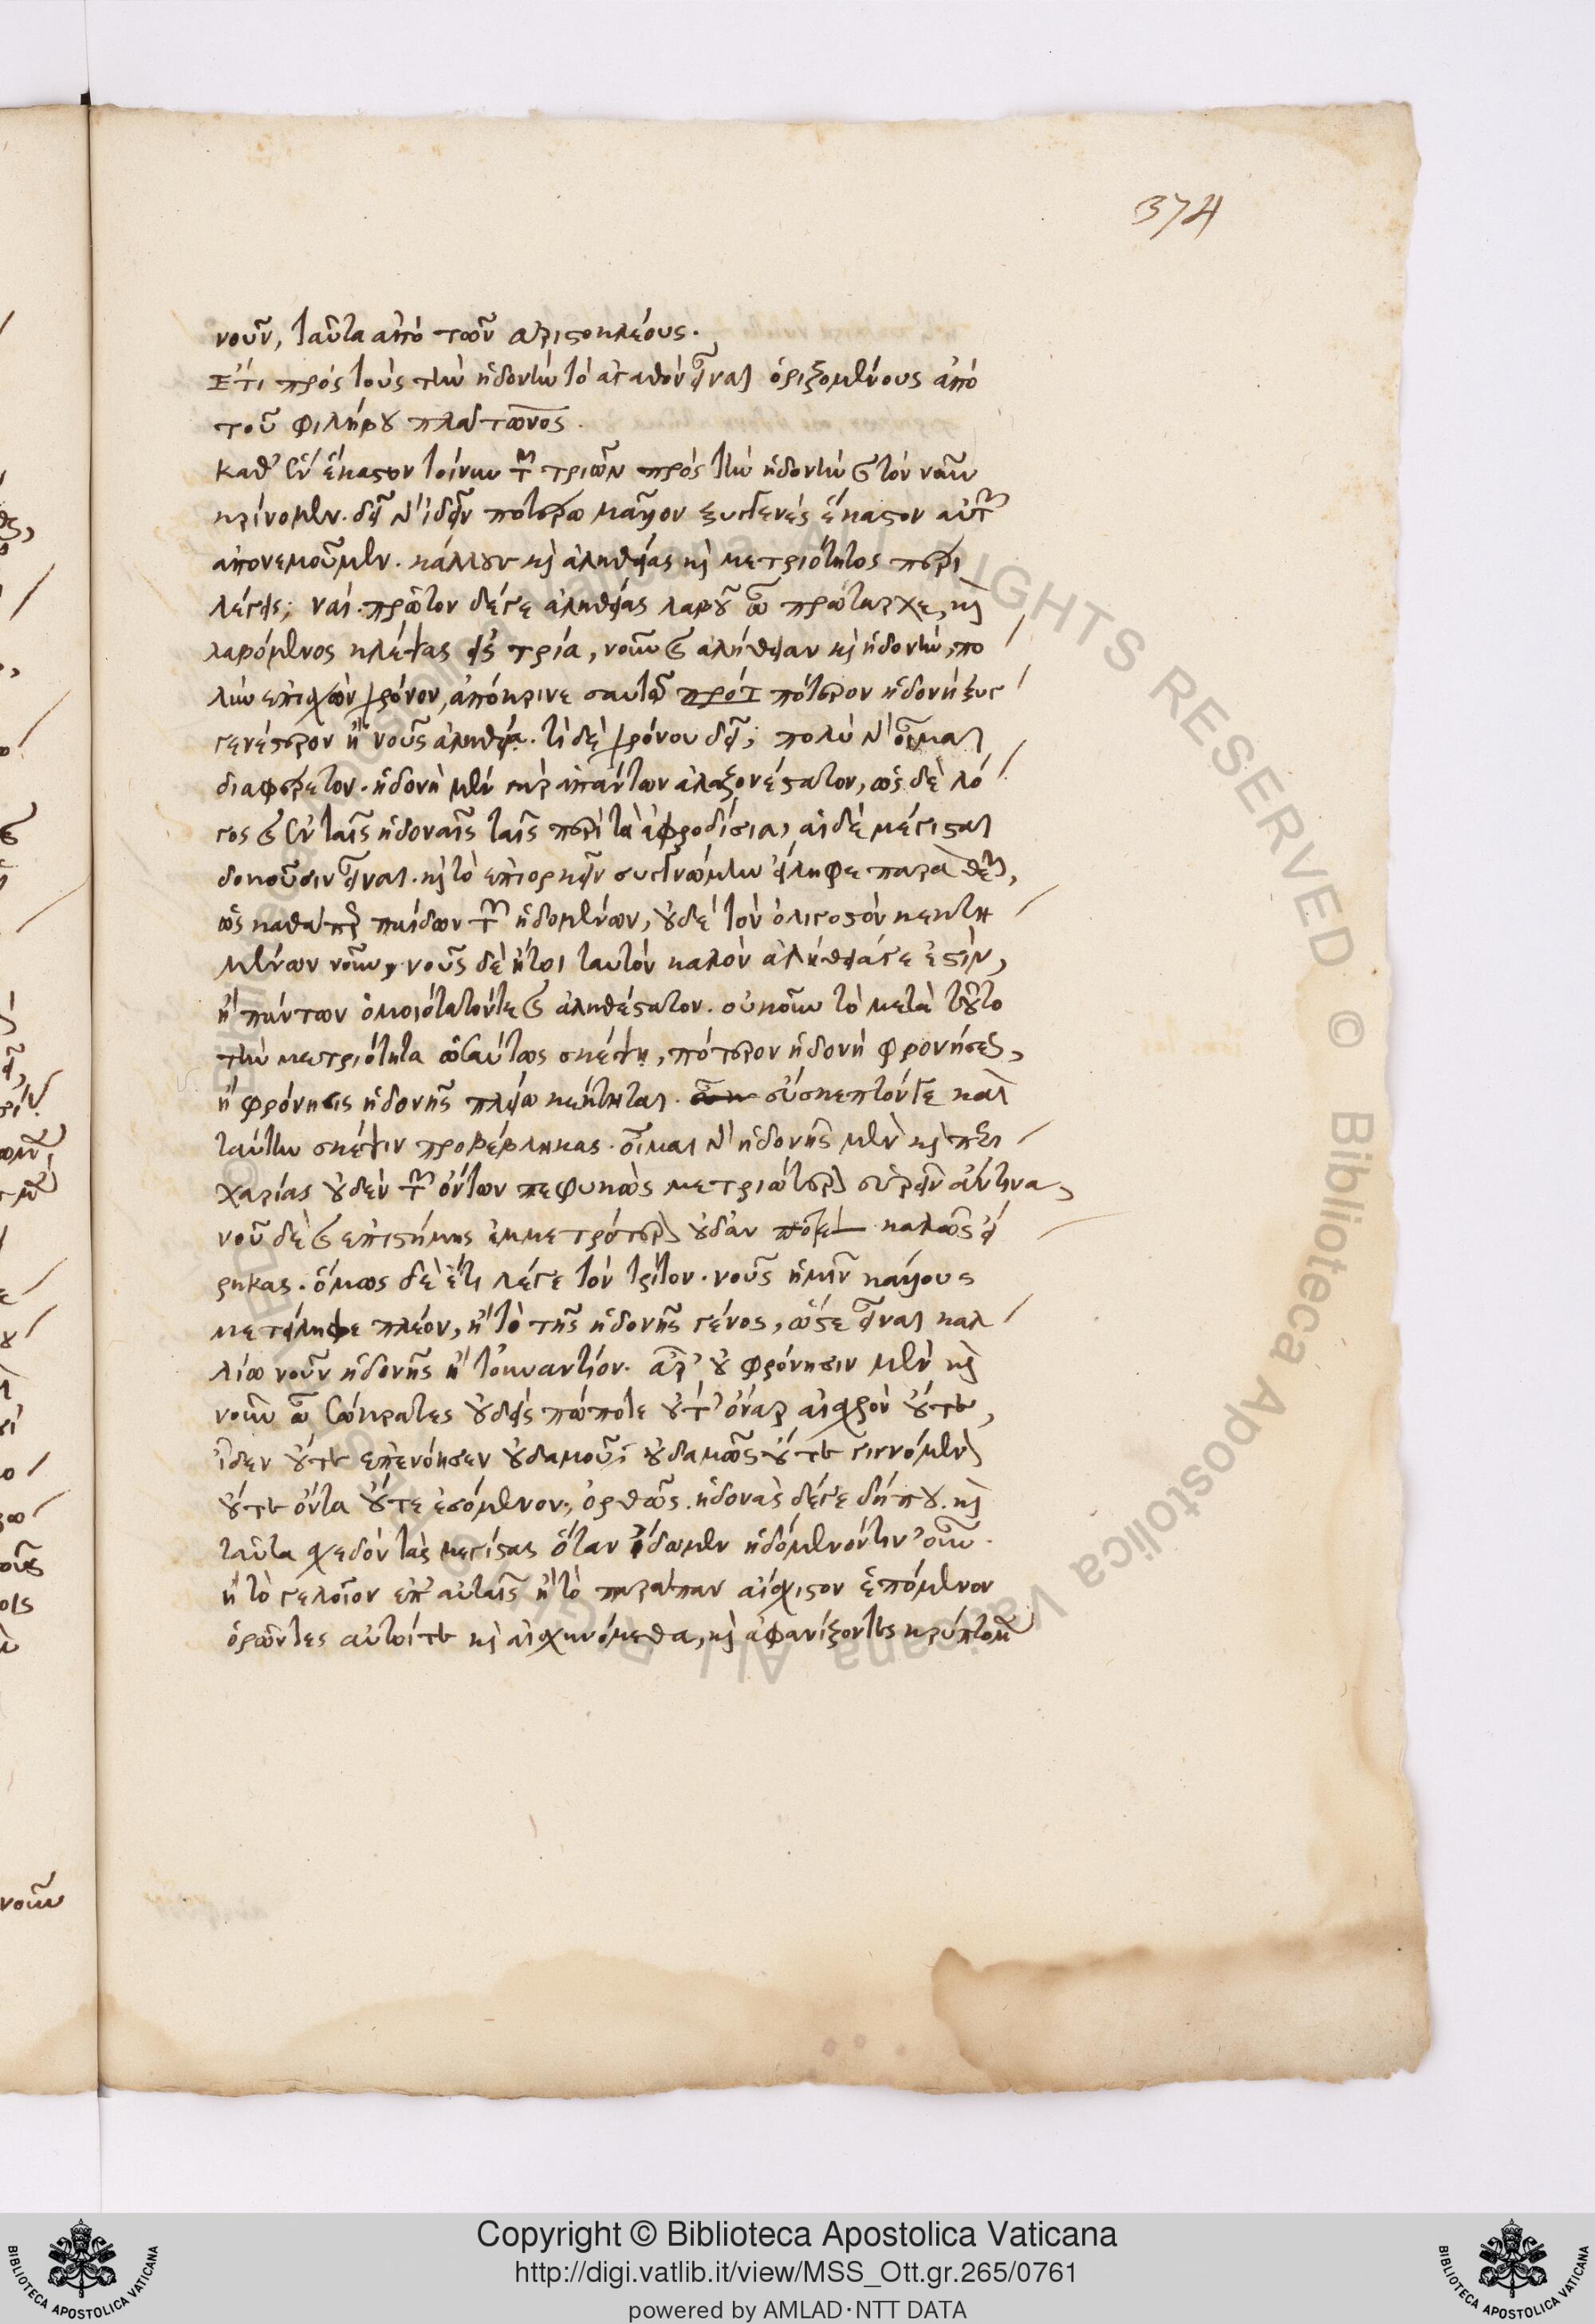 374
νοῦν, ταῦτα ἀπὸ τοῦ ἀριστοκλέους.
Ἔτι πρὸς τοὺς τὴν ἡδονὴν τὸ ἀγαθὸν εἶναι ὁριζομένους ἀπὸ
τοῦ φιλήβου πλάτωνος.
καθ' ἓν ἕκαστον τοίνυν τῶν τριῶν πρὸς τὴν ἡδονὴν καὶ τὸν νοῦν
κρίνομεν. δεῖ γὰρ ἰδεῖν ποτέρῳ μᾶλλον ξυγγενὲς ἕκαστον αὐτῶν
ἀπονεμοῦμεν. κάλλους καὶ ἀληθείας καὶ μετριότητος πέρι
λέγεις; ναί. πρῶτον δέ γε ἀληθείας λαβοῦ ὦ πρώταρχε, καὶ
λαβόμενος βλέψας εἰς τρία, νοῦν καὶ ἀλήθειαν καὶ ἡδονὴν, πο
λὺν ἐπισχὼν χρόνον, ἀπόκριναι σαυτῷ πότερον ἡδονὴ ξυγ
γενέστερον ἢ νοῦς ἀληθείᾳ. τί δὲ χρόνου δεῖ; πολὺ γὰρ οἶμαι
διαφέρετον. ἡδονὴ μὲν γὰρ ἁπάντων ἀλαζονέστατον, ὡς δὲ λό
γος καὶ ἐν ταῖς ἡδοναῖς ταῖς περὶ τὰ ἀφροδίσια, αἳ δὲ μέγισται
δοκοῦσιν εἶναι. καὶ τὸ ἐπιορκεῖν συγγνώμην εἴληφε παρὰ θεῶν,
ὡς καθάπερ παίδων τῶν ἡδονῶν, οὐδὲ τὸν ὀλίγοστὸν κεκτη
μένων νοῦν, νοῦς δὲ ἤτοι ταυτὸν καλὸν ἀλήθειά γε ἐστὶν,
ἢ πάντων ὁμοιότατόν τε καὶ ἀληθέστατον. οὐκοῦν τὸ μετὰ τοῦτο
τὴν μετριότητα ὡσαύτως σκέψη, πότερον ἡδονὴ φρονήσεως,
ἢ φρόνησις ἡδονῆς πλείω κέκτηται. εὔσκεπτόν γε καὶ
ταύτην σκέψιν προβέβληκας. οἶμαι γὰρ ἡδονῆς μὲν καὶ περι
χαρίας οὐδὲν τῶν ὄντων πεφυκὸς μετριώτερον εὑρεῖν ἄν τινα,
νοῦ δὲ καὶ ἐπιστήμης ἐμμετρότερον οὐδ' ἄν ποτε. καλῶς εἴ
ρηκας. ὅμως δὲ ἔτι λέγε τὸν τρίτον. νοῦς ἡμῖν κάλλους
μετείληφε πλέον, ἢ τὸ τῆς ἡδονῆς γένος, ὥστε εἶναι καλ
λίω νοῦν ἡδονῆς ἢ τοὐναντίον. ἆρ' οὐ φρόνησιν μὲν καὶ
νοῦν ὦ Σώκρατες οὐδεὶς πώποτε οὔτ' ὄναρ αἰσχρὸν οὔτε,
εἶδεν οὔτε ἐπενόησεν οὐδαμοῦ οὐδαμῶς οὔτε γιγνόμενον
οὔτε ὄντα οὔτε ἐσόμενον, ὀρθῶς. ἡδονὰς δέ γε δήπου. καὶ
ταῦτα σχεδὸν τὰς μεγίστας ὅταν ἴδωμεν ἡδόμενον ὁντινοῦν.
ἢ τὸ γελοῖον ἐπ' αὐταῖς ἢ τὸ πάμπαν αἴσχιστον ἑπόμενον
ὁρῶντες αὐτοί τε καὶ αἰσχυνόμεθα, καὶ ἀφανίζοντες κρύπτομεν
νοῦν
Copyright © Biblioteca Apostolica Vaticana
http://digi.vatlib.it/view/MSS_Ott.gr.265/0761
powered by AMLAD·NTT DATA
BIBLIOTECA APOSTOLICA VATICANA
BIBLIOTECA APOSTOLICA VATICANA